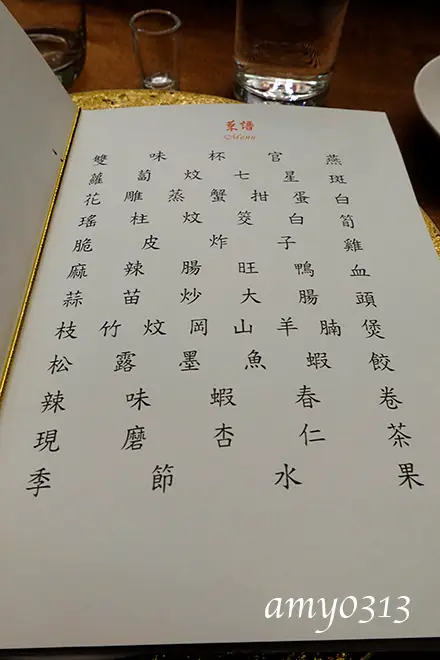 菜譜
Menu
雙味杯官燕
蘿蔔炆七星斑
花雕蒸蟹拑蛋白
瑤柱炆筊白筍
脆皮炸子雞
麻辣腸旺鴨血
蒜苗炒大腸頭
枝竹炆岡山羊腩煲
松露墨魚蝦餃
辣味蝦春卷
現磨杏仁茶
季節水果
amy0313